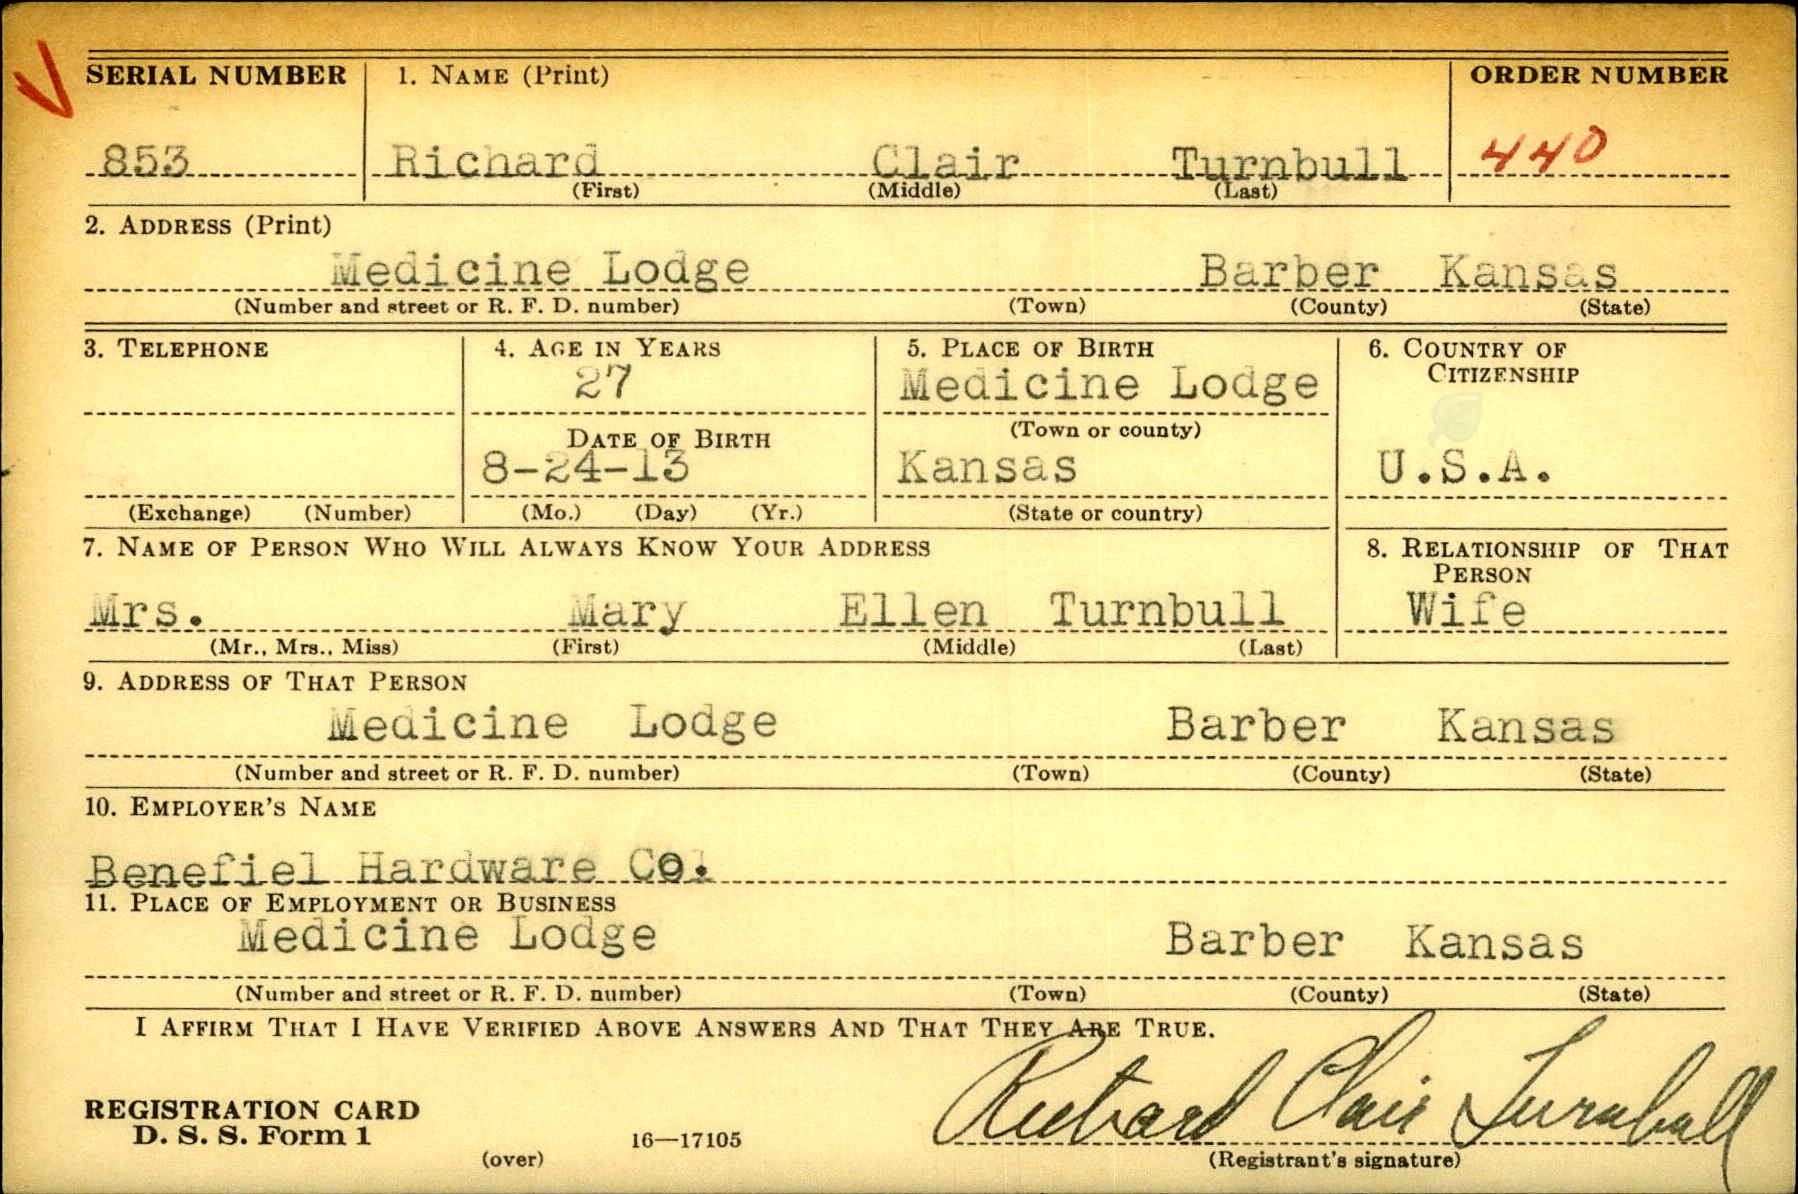 SERIAL NUMBER 1. NAME (Print) ORDER NUMBER
853 Richard Clair Turnbull 440
(First) (Middle) (Last)
2. ADDRESS (Print)
Medicine Lodge Barber Kansas
(Number and street or R. F. D. number) (Town) (County) (State)
3. TELEPHONE 4. AGE IN YEARS 5. PLACE OF BIRTH 6. COUNTRY OF
CITIZENSHIP
27 Medicine Lodge
(Town or county)
DATE OF BIRTH
8-24-13 Kansas U.S.A.
(Exchange) (Number) (Mo.) (Day) (Yr.) (State or country)
7. NAME OF PERSON WHO WILL ALWAYS KNOW YOUR ADDRESS 8. RELATIONSHIP OF THAT
PERSON
Mrs. Mary Ellen Turnbull Wife
(Mr., Mrs., Miss) (First) (Middle) (Last)
9. ADDRESS OF THAT PERSON
Medicine Lodge Barber Kansas
(Number and street or R. F. D. number) (Town) (County) (State)
10. EMPLOYER'S NAME
Benefiel Hardware Co.
11. PLACE OF EMPLOYMENT OR BUSINESS
Medicine Lodge Barber Kansas
(Number and street or R. F. D. number) (Town) (County) (State)
I AFFIRM THAT I HAVE VERIFIED ABOVE ANSWERS AND THAT THEY ARE TRUE.
Richard Clair Turnbull
REGISTRATION CARD
D. S. S. Form 1 16—17105
(over) (Registrant's signature)